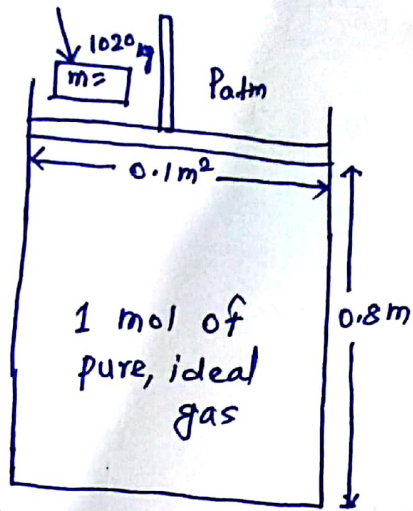 1020 kg
m=
Patm
0.1m²
1 mol of
pure, ideal
gas
0.8m